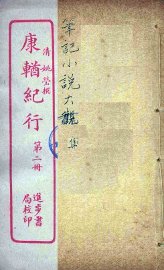 清姚瑩撰
康輶紀行
第二冊
進步書
局校印
筆記小說大觀
集